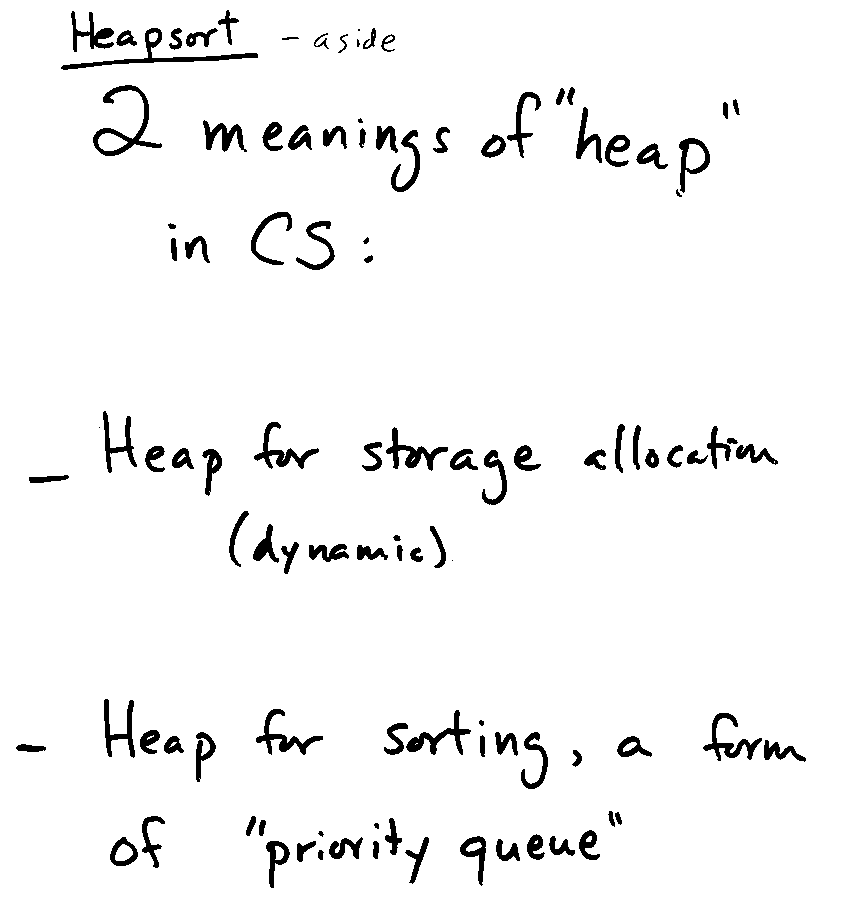 Heapsort - aside
2 meanings of "heap"
in CS:
- Heap for storage allocation
(dynamic)
- Heap for sorting, a form
of "priority queue"